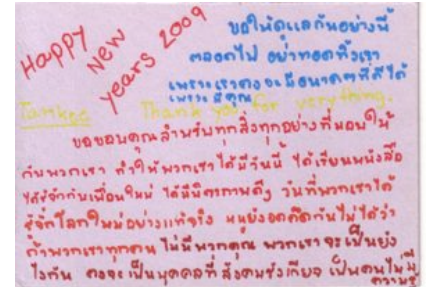 Happy
New
years 2009
ขอให้ดูแลกันอย่างนี้
ตลอดไป อย่าทอดทิ้งเรา
เพราะเราคงจะมีอนาคตที่ดีได้
เพราะมีคุณ
Thank you for verything.
ขอขอบคุณสำหรับทุกสิ่งทุกอย่างที่มอบให้
กับพวกเรา ทำให้พวกเราได้มีวันนี้ ได้เรียนหนังสือ
ได้รู้จักกับเพื่อนใหม่ ได้มีมิตรภาพดีๆ วันที่พวกเราได้
รู้จักโลกใหม่อย่างแท้จริง หนูยังอดคิดกันไม่ได้ว่า
ถ้าพวกเราทุกคน ไม่มีพวกคุณ พวกเราจะเป็นยัง
ไงกัน คงจะเป็นบุคคลที่สังคมรังเกียจ เป็นคนไม่มี
ความรู้